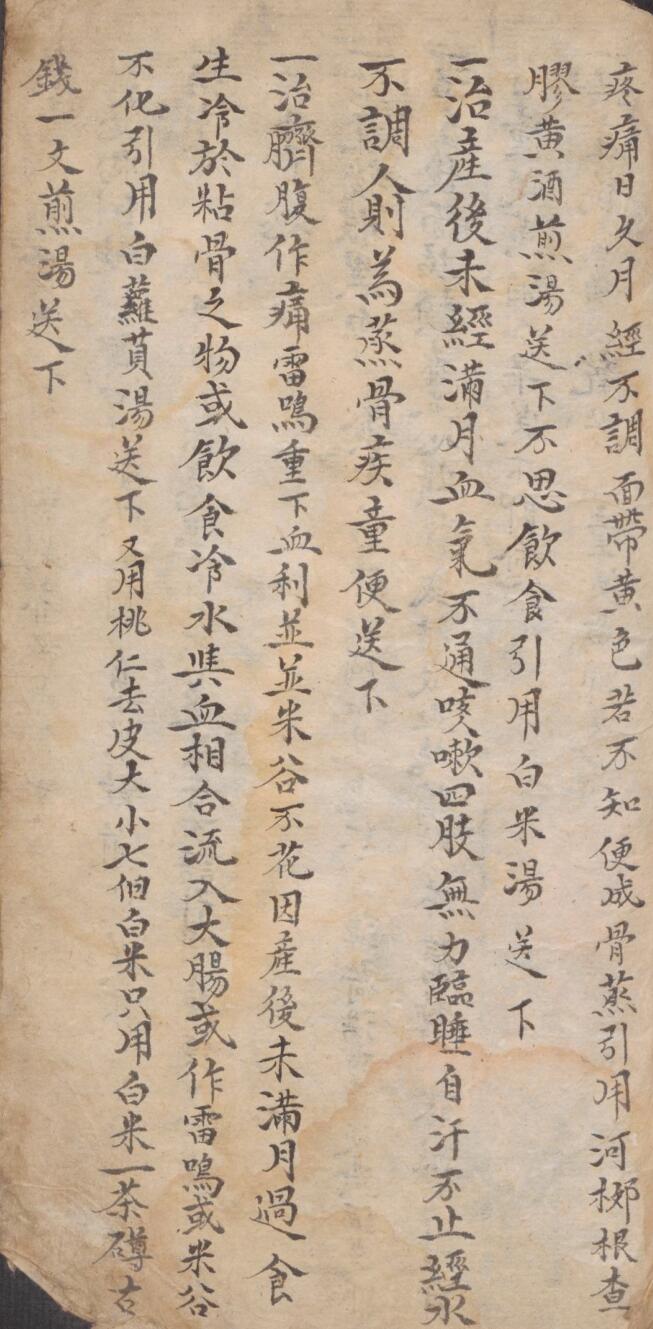 疼痛日久月經不調面帶黄色若不知便成骨蒸引用河梆根查
膠黄酒煎湯送下不思飲食引用白米湯送下
一治産後未經滿月血氣不通咳嗽四肢無力臨睡自汗不止經水
不調人則為蒸骨疾童便送下
一治臍腹作痛雷鳴重下血利並並米谷不花因産後未滿月過食
生冷於粘骨之物或飲食冷水與血相合流入大腸或作雷鳴或米谷
不化引用白蘿蔔湯送下又用桃仁去皮大小七個白米只用白米一茶罇古
錢一文煎湯送下